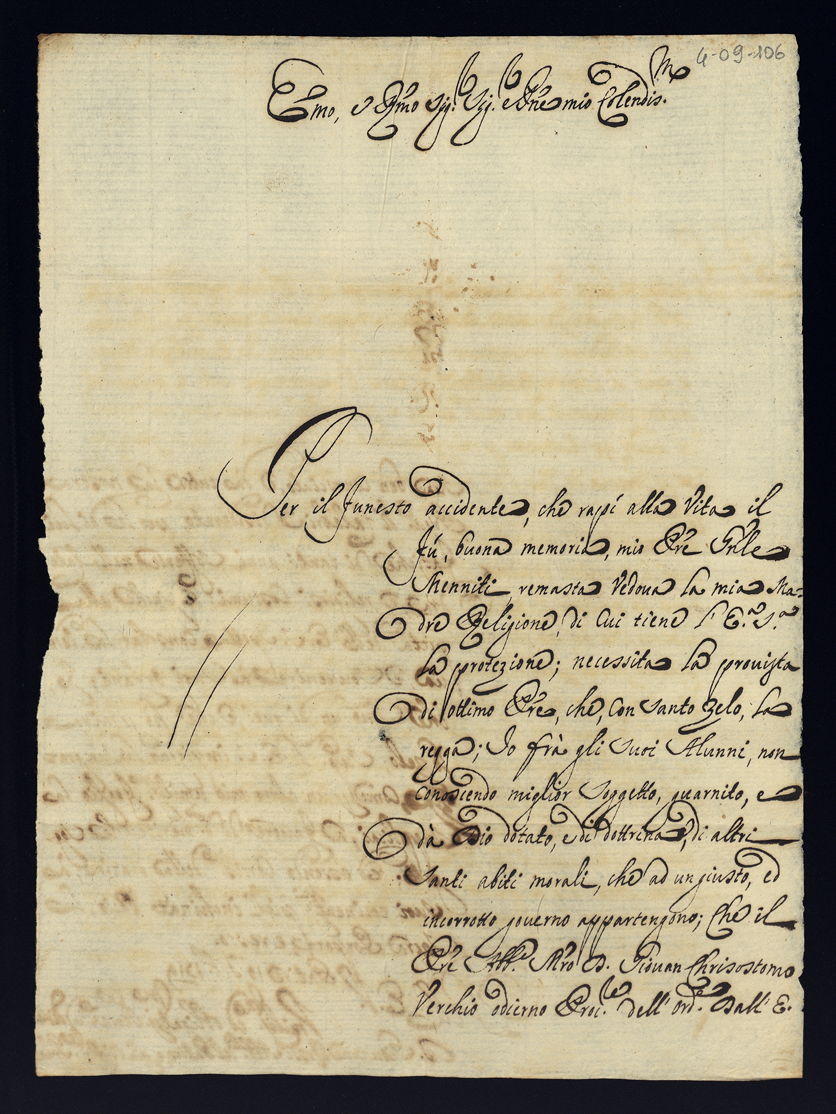 4-09-106
Emo, e Rmo Sig.r Sig.r e Prne mio Colendis.mo
Per il funesto accidente, che rapì alla Vita il
fù, buona memoria, mio Pre Gnle
Menniti, remasta Vedova la mia Ma=
dre Religione, di cui tiene l'E.a S.a
la protezione; necessita la provista
di ottimo Pre, che, con santo zelo, la
regga; Io frà gli suoi Alunni, non
conoscendo miglior soggetto, guarnito, e
dà Dio dotato, e di dottrina, di altri
santi abiti morali, che ad un giusto, ed
incorrotto governo appartengono; Che il
Pre Abb.e Mro D. Giovan Chrisostomo
Verchio odierno Proc.le dell'ord.e Dall'E.